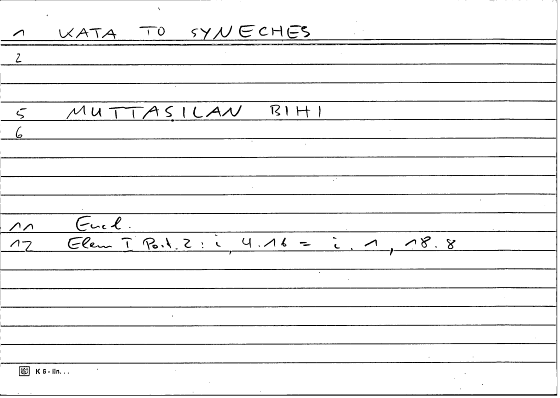 1 KATA TO SYNECHES
2
5 MUTTAṢILAN BIHI
6
11 Eucl.
12 Elem I Post. 2 : i, 4.16 = i. 1, 18.8
K 6 - lin. . .